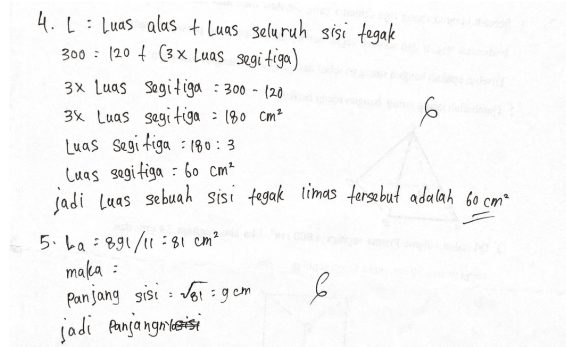 4. L = Luas alas + Luas seluruh sisi tegak
300 = 120 + (3 x Luas segitiga)
3x Luas segitiga = 300 - 120
3x Luas segitiga = 180 cm²
Luas segitiga = 180 : 3
Luas segitiga = 60 cm²
6
jadi Luas sebuah sisi tegak limas tersebut adalah 60 cm²
5. La = 891/11 = 81 cm²
maka =
Panjang sisi = √81 = 9 cm
6
jadi Panjang